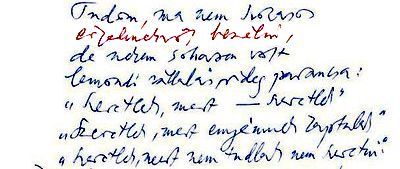 Tudom, ma nem szokásos
érzelmekről beszélni,
de nekem sohasem volt
lemondó vállalás, rideg parancsa:
„Szeretlek, mert — szeretlek"
„Szeretlek, mert enyémnek kaptalak"
„Szeretlek, mert nem tudlak nem szeretni."